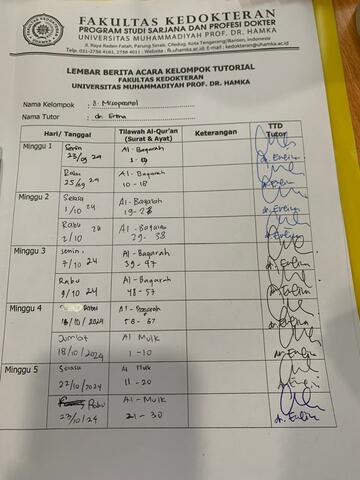 FAKULTAS KEDOKTERAN
PROGRAM STUDI SARJANA DAN PROFESI DOKTER
UNIVERSITAS MUHAMMADIYAH PROF. DR. HAMKA
Jl. Raya Raden Fatah, Parung Serab, Ciledug, Kota Tangerang/Banten, Indonesia
LEMBAR BERITA ACARA KELOMPOK TUTORIAL
FAKULTAS KEDOKTERAN
UNIVERSITAS MUHAMMADIYAH PROF. DR. HAMKA
Nama Kelompok : 8. Misoprostol
Nama Tutor : dr.
Hari/ Tanggal Tilawah Al-Qur'an (Surat & Ayat) Keterangan TTD Tutor
Minggu 1 Senin Al-Baqarah
23/09 24 1 -
Rabu Al-Baqarah
25/09 24 10 - 18
Minggu 2 Selasa Al-Baqarah
1/10 24 19-28
Rabu Al-Baqarah
2/10 24 29 - 38
Minggu 3 Senin Al-Baqarah
7/10 24 39 - 47
Rabu Al-Baqarah
9/10 24 48 - 57
Minggu 4 Rabu Al-Baqarah
16/10/2024 58 - 67
Jumat Al Mulk
18/10/2024 1 - 10
Minggu 5 Selasa Al Mulk
22/10/2024 11 - 20
Rabu Al-Mulk
23/10/24 21 - 30